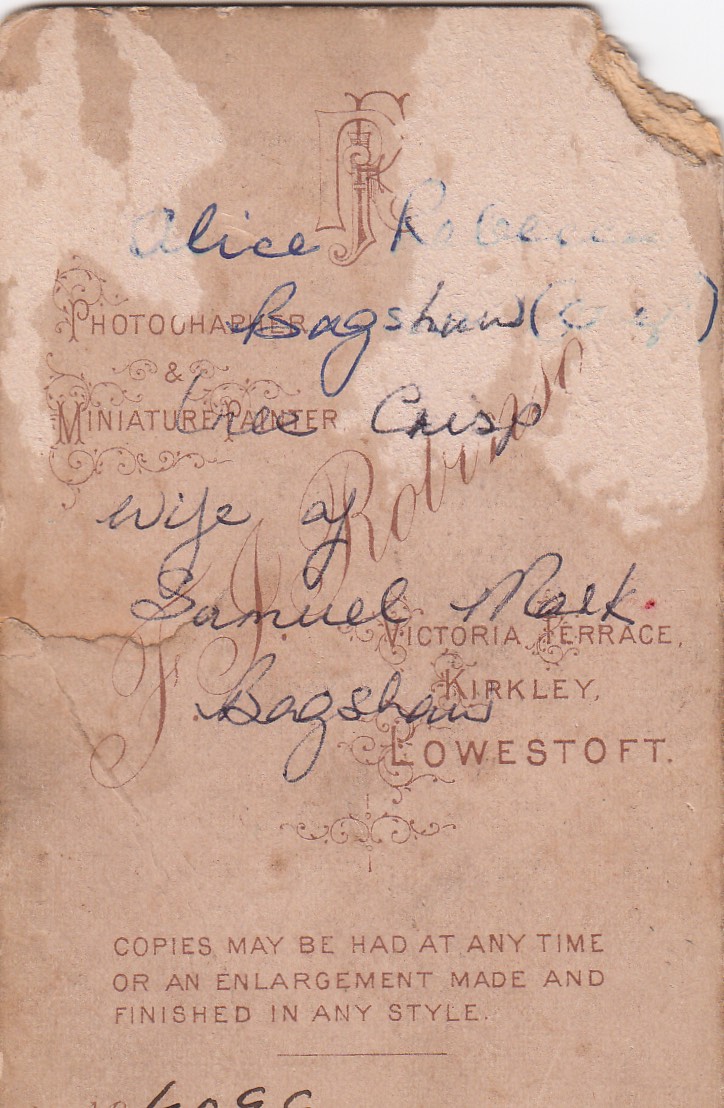 Alice
PHOTOGRAPHER
Bagshaw (
&
MINIATURE PAINTER
née Crisp
F. J. Robinson
wife of
Samuel Mark
VICTORIA TERRACE,
KIRKLEY,
Bagshaw
LOWESTOFT.
COPIES MAY BE HAD AT ANY TIME
OR AN ENLARGEMENT MADE AND
FINISHED IN ANY STYLE.